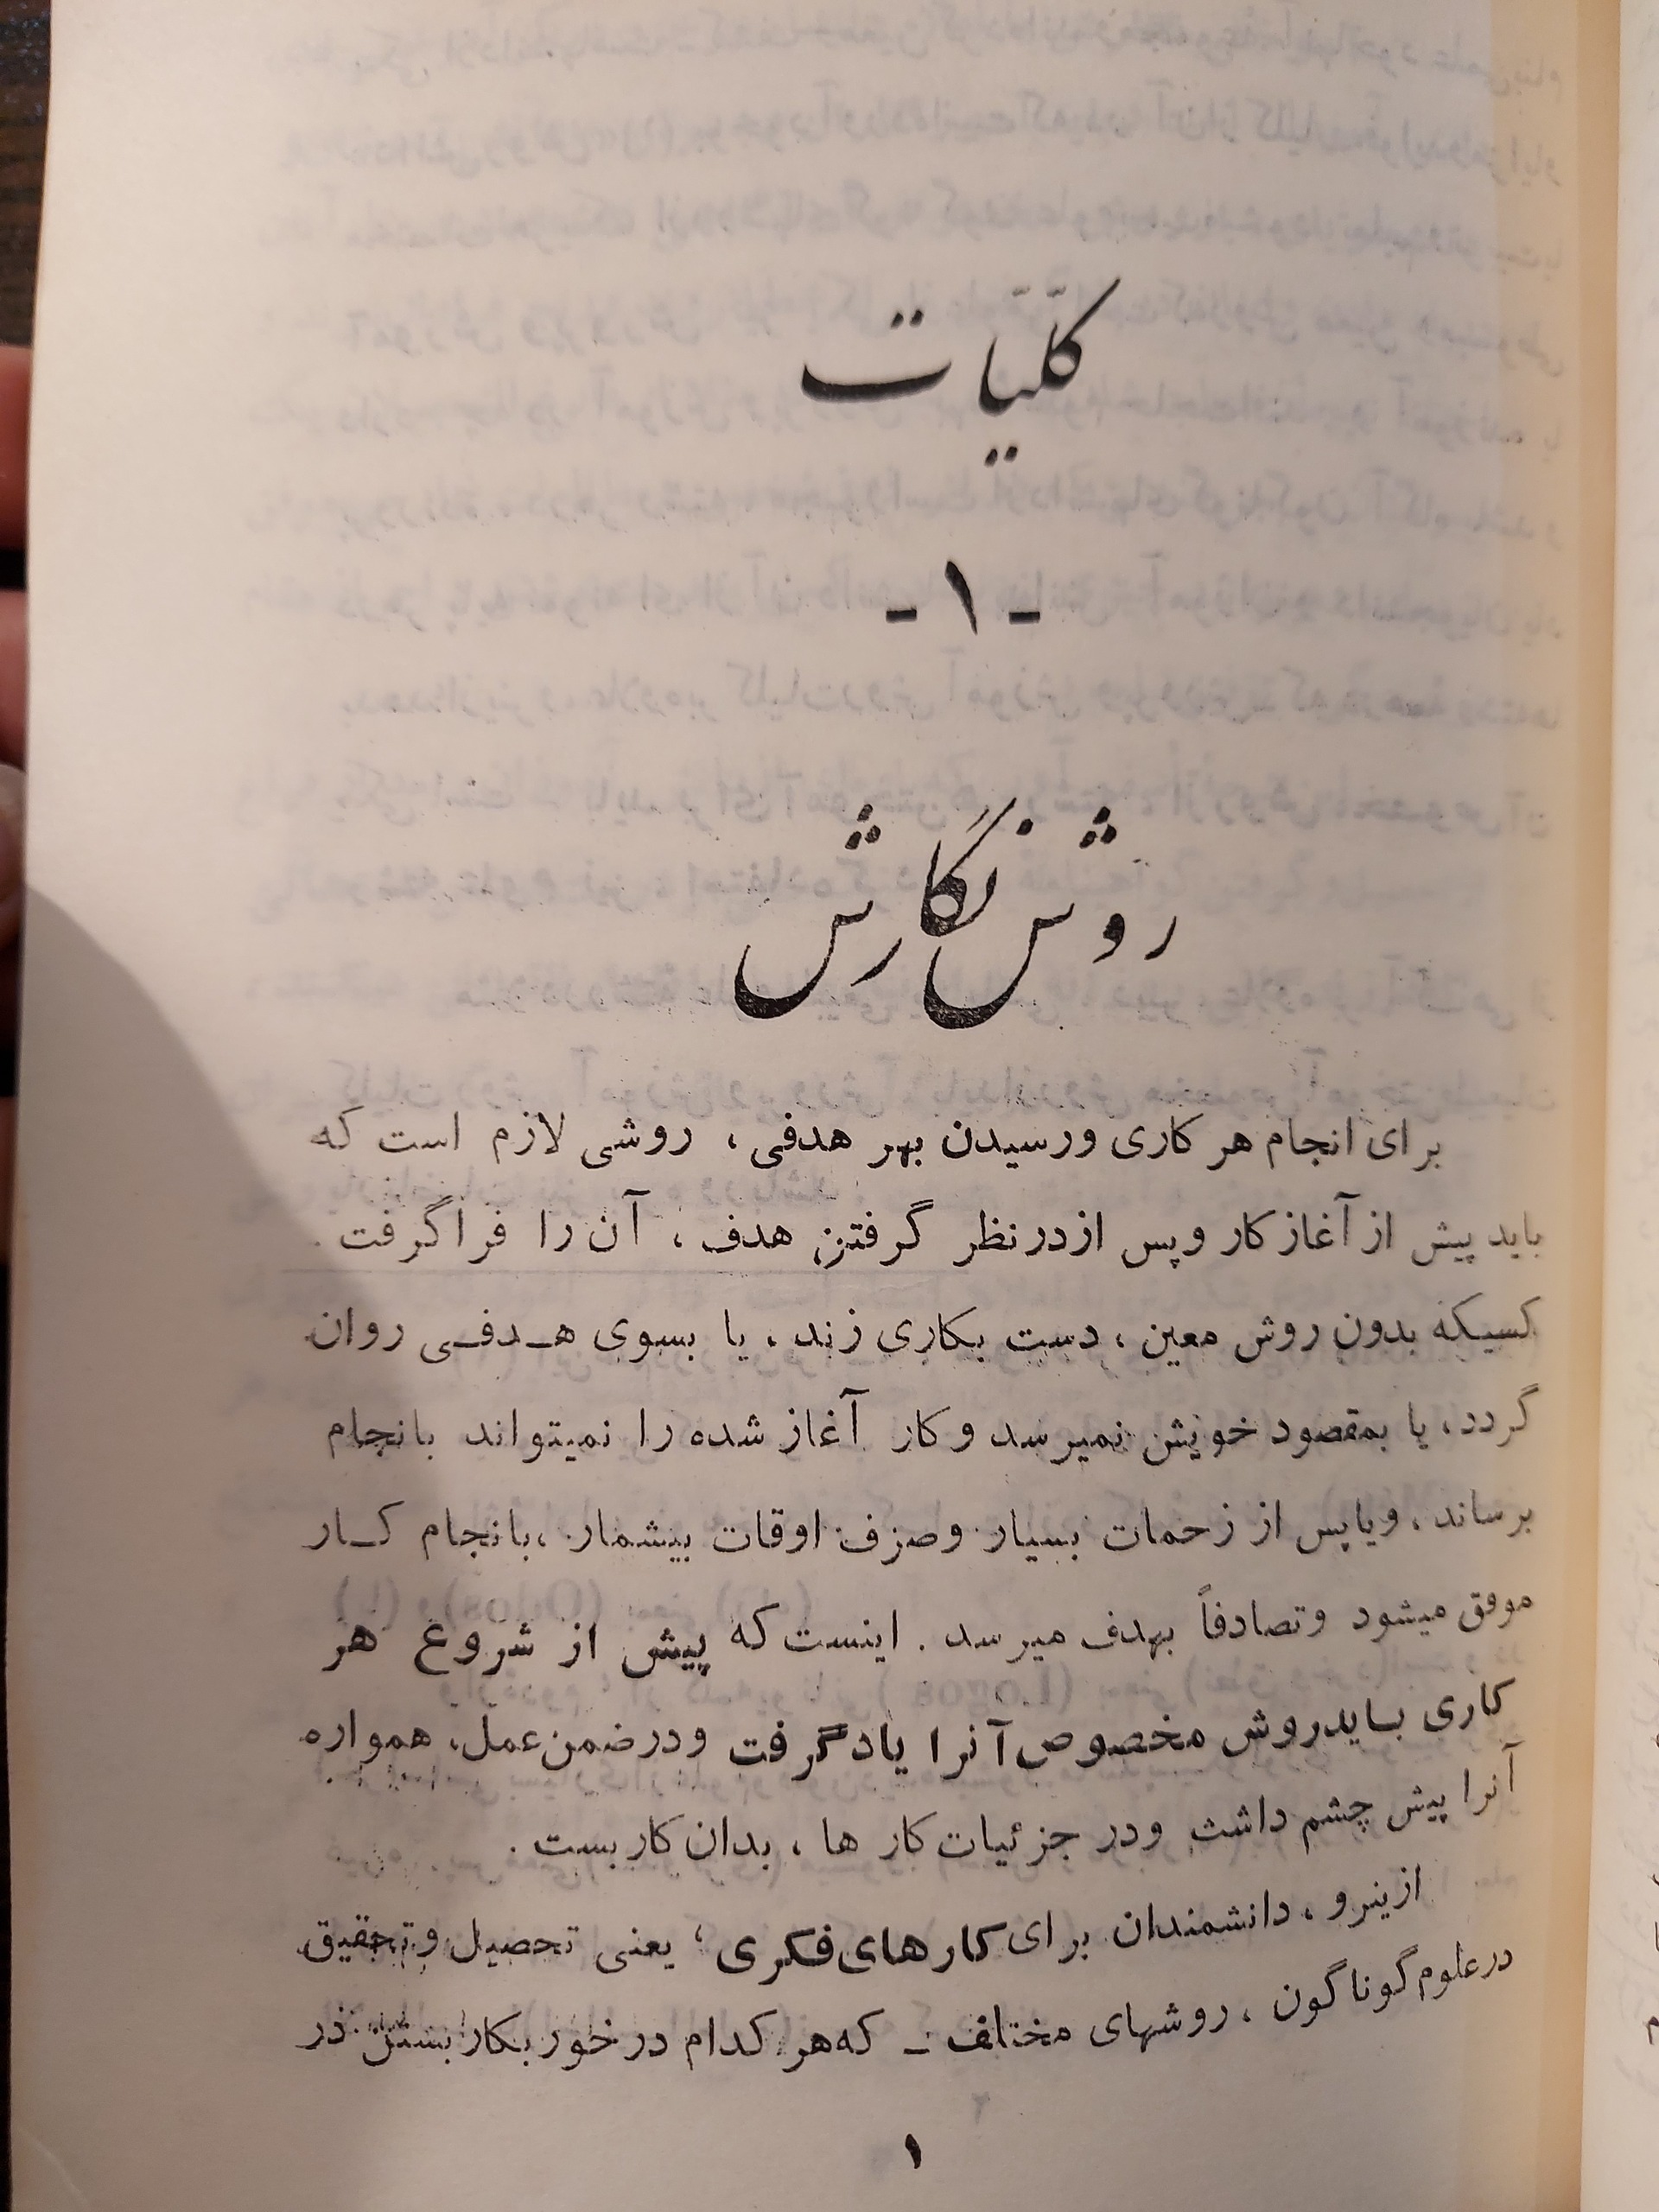 کلّیّات
- ۱ -
روش نگارش
برای انجام هر کاری ورسیدن بهر هدفی، روشی لازم است که
باید پیش از آغاز کار وپس ازدرنظر گرفتن هدف، آن را فراگرفت.
کسیکه بدون روش معین، دست بکاری زند، یا بسوی هدفی روان
گردد، یا بمقصود خویش نمیرسد وکار آغاز شده را نمیتواند بانجام
برساند، ویاپس از زحمات بسیار وصرف اوقات بیشمار، بانجام کار
موفق میشود وتصادفاً بهدف میرسد. اینست که پیش از شروع هر
کاری بایدروش مخصوص آنرا یادگرفت ودرضمن عمل، همواره
آنرا پیش چشم داشت ودر جزئیات کار ها، بدان کاربست.
ازینرو، دانشمندان برای کارهای فکری؛ یعنی تحصیل وتحقیق
درعلوم گوناگون، روشهای مختلف ـ که هر کدام درخور بکاربستن در
۱